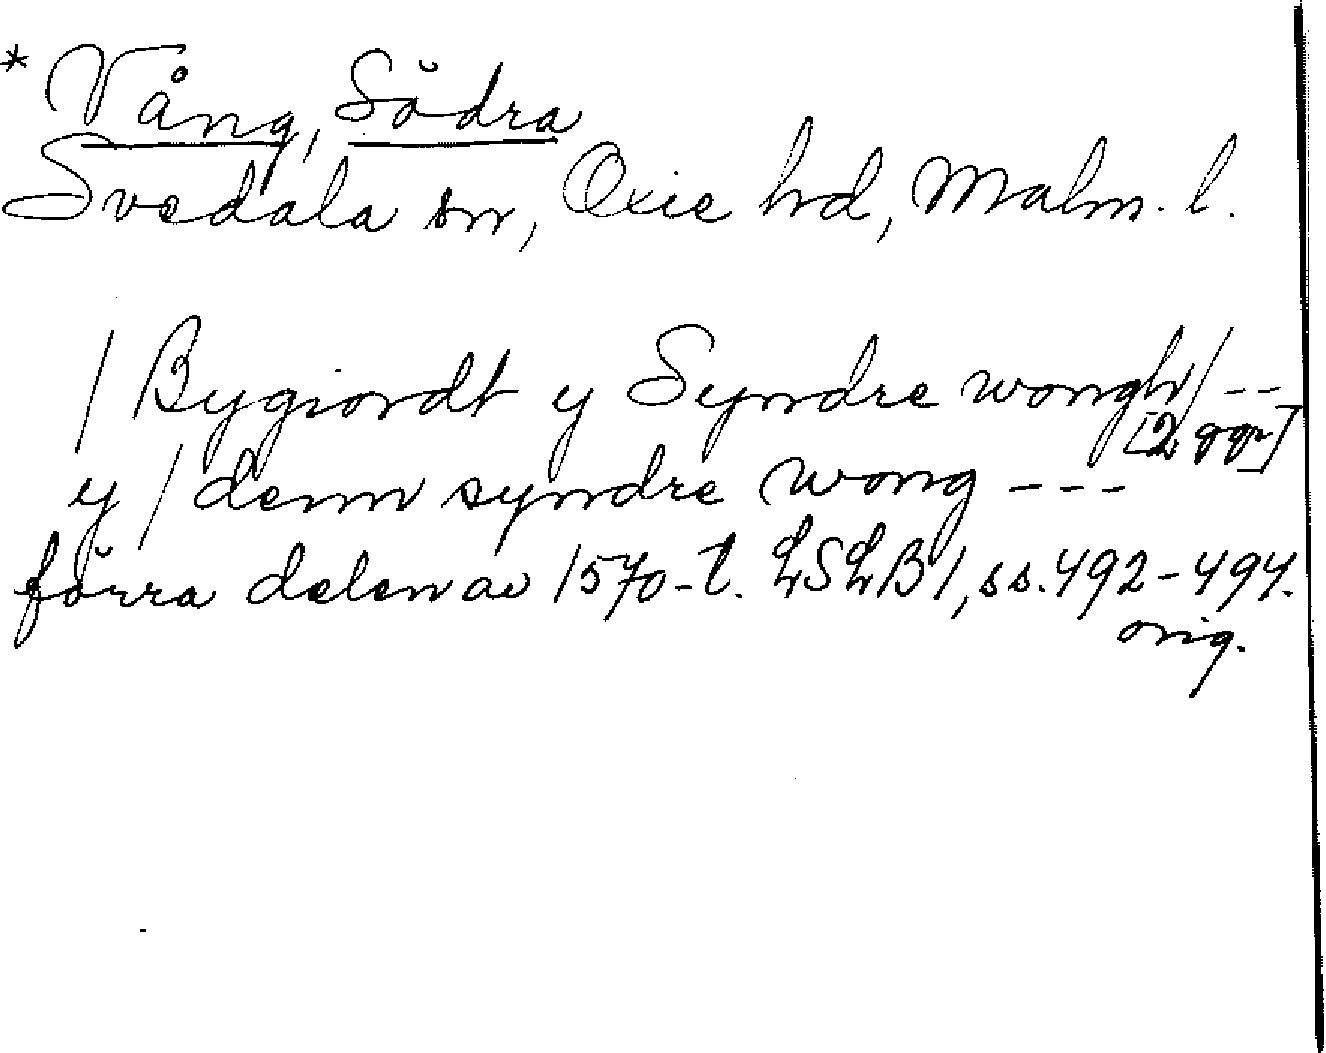 * Vång, Södra
Svedala sn, Oxie hd, Malm. l.
/ Bygiordt y Syndre wongh / --
[2 ggr]
y / denn syndre wong ---
förra delen av 1570-t. LSLB 1, ss. 492-494.
orig.